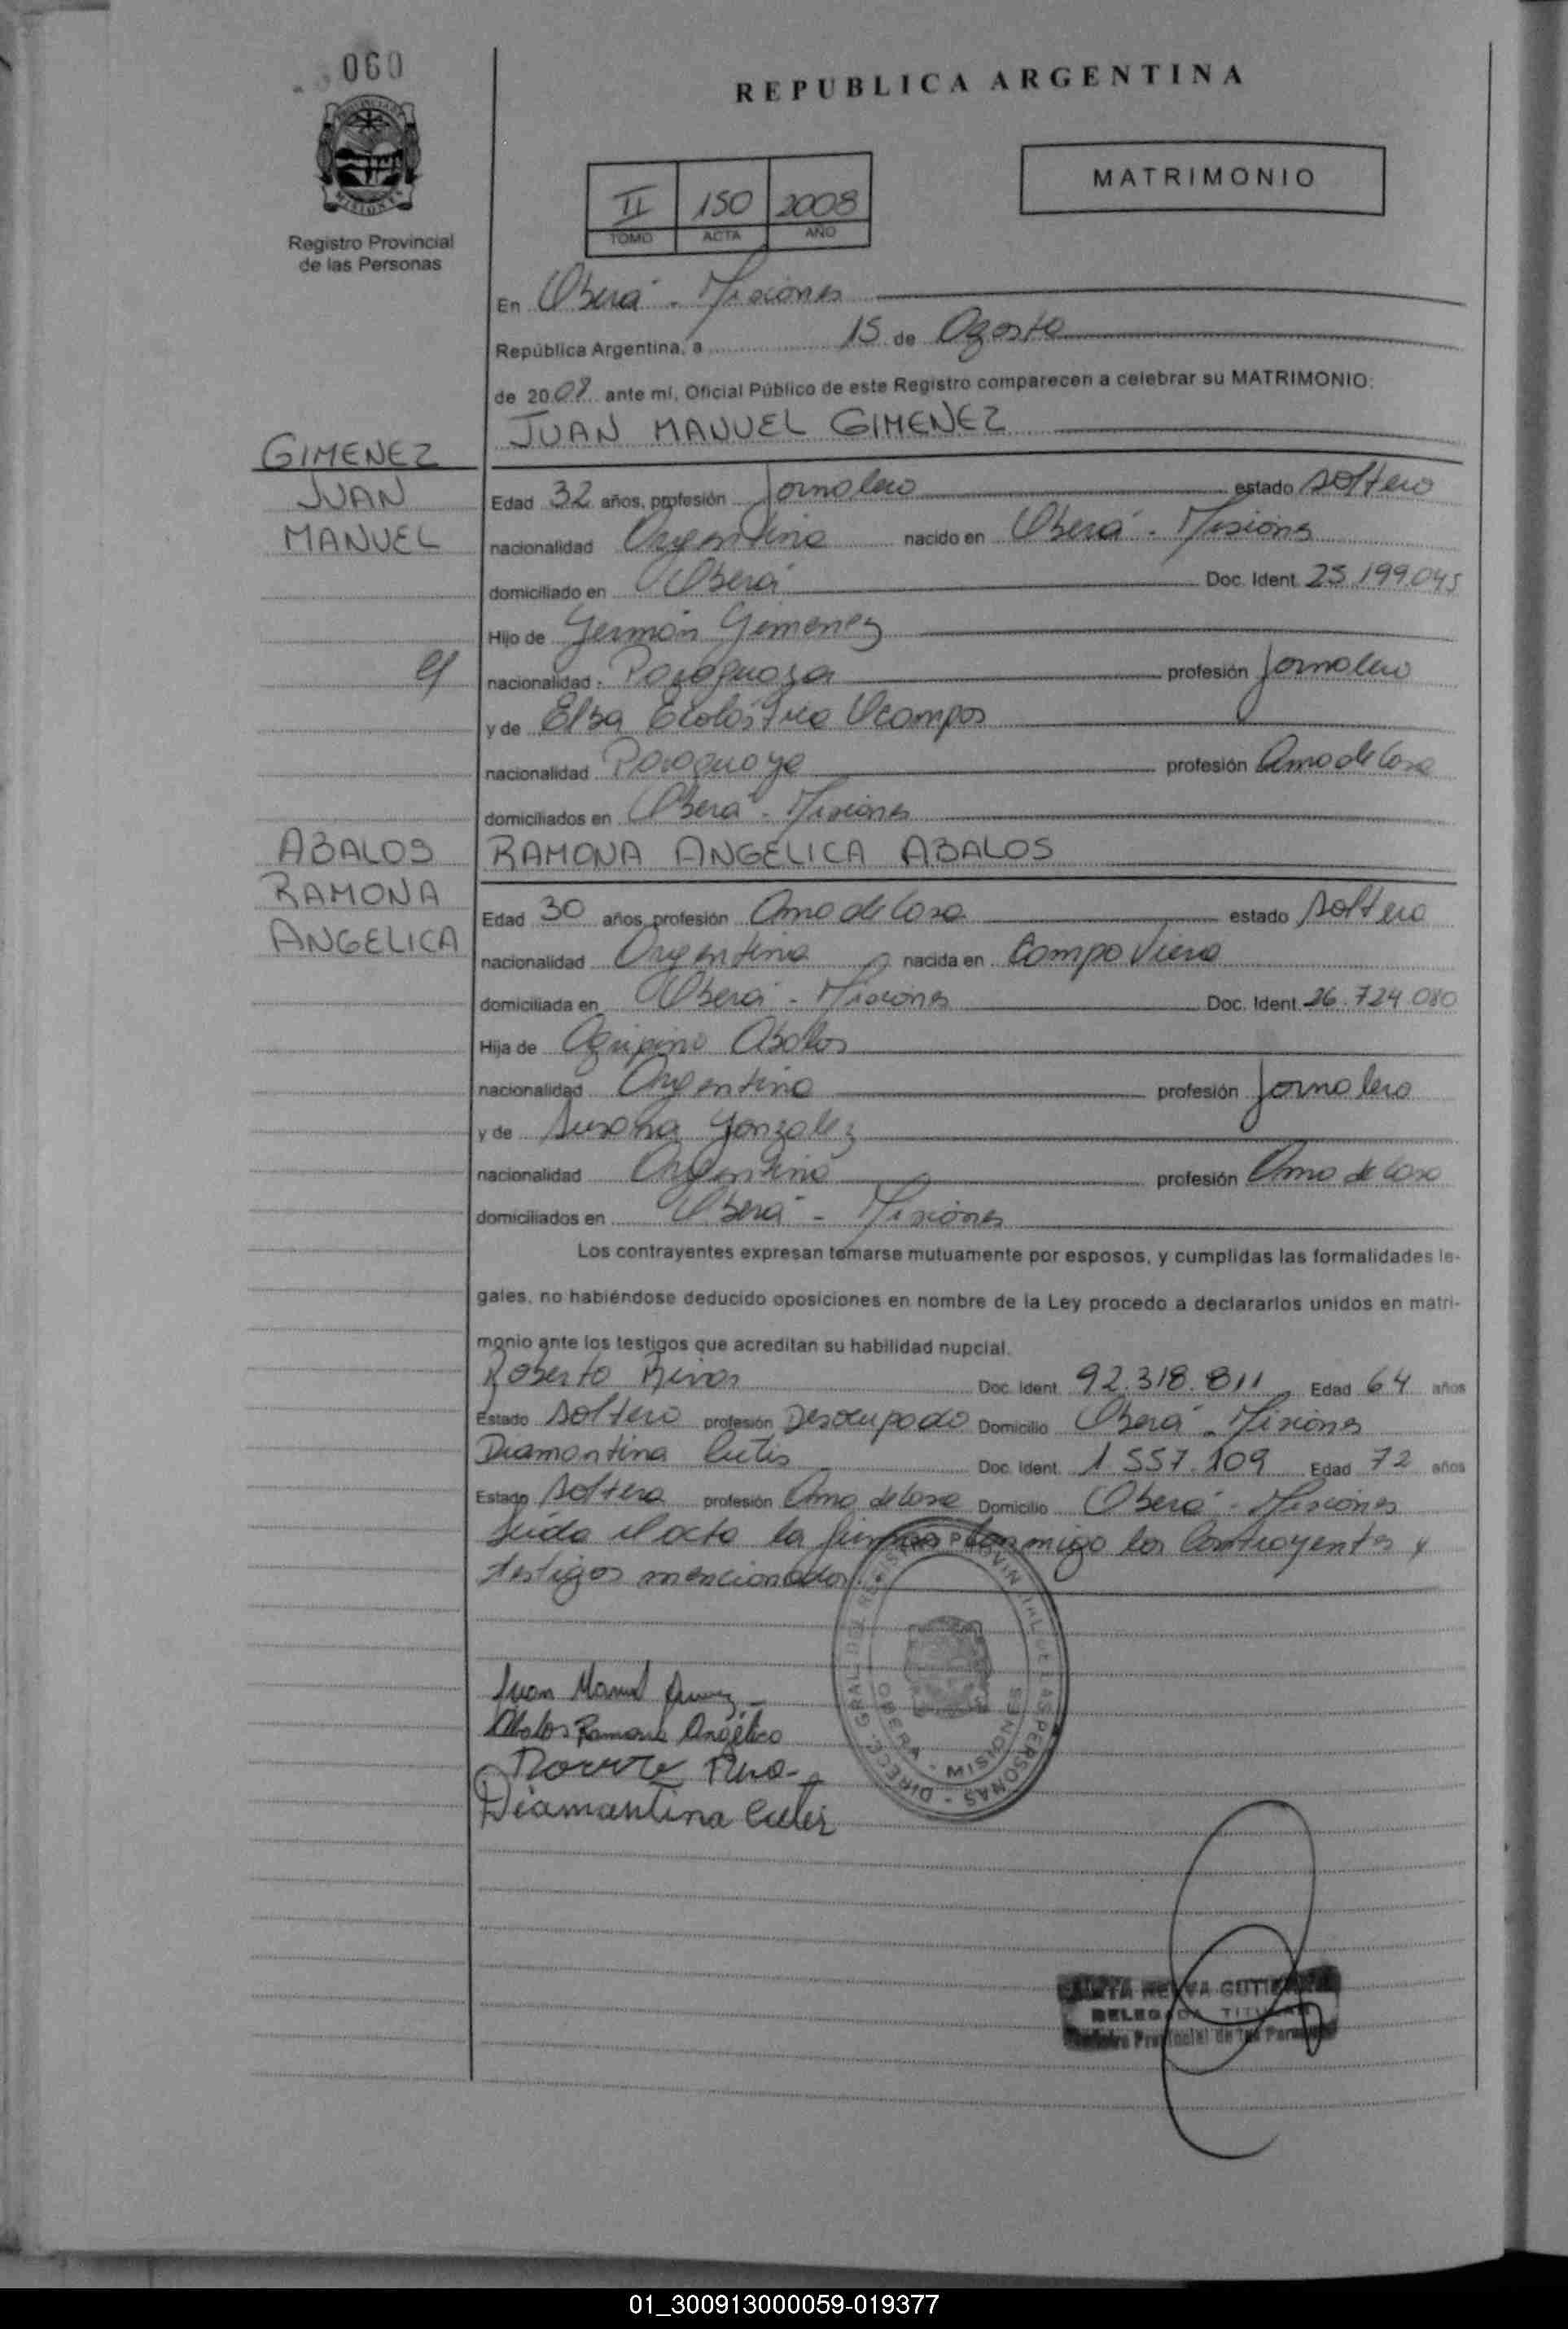 060
REPUBLICA ARGENTINA
MATRIMONIO
II 150 2008
TOMO ACTA AÑO
Registro Provincial
de las Personas
En Oberá - Misiones
República Argentina, a 15 de Agosto
de 2008 ante mí, Oficial Público de este Registro comparecen a celebrar su MATRIMONIO:
JUAN MANUEL GIMENEZ
GIMENEZ
JUAN
MANUEL
Edad 32 años, profesión Jornalero estado soltero
nacionalidad Argentina nacido en Oberá - Misiones
domiciliado en Oberá Doc. Ident. 25.199.045
Hijo de Germán Gimenez
nacionalidad Paraguaya profesión Jornalero
y de Elsa Ecolástica Ocampos
nacionalidad Paraguaya profesión Ama de Casa
domiciliados en Oberá - Misiones
ABALOS
RAMONA
ANGELICA
RAMONA ANGELICA ABALOS
Edad 30 años, profesión Ama de Casa estado soltera
nacionalidad Argentina nacida en Campo Viera
domiciliada en Oberá - Misiones Doc. Ident. 26.724.080
Hija de Agripino Abalos
nacionalidad Argentina profesión Jornalero
y de Susana Gonzalez
nacionalidad Argentina profesión Ama de Casa
domiciliados en Oberá - Misiones
Los contrayentes expresan tomarse mutuamente por esposos, y cumplidas las formalidades le-
gales, no habiéndose deducido oposiciones en nombre de la Ley procedo a declararlos unidos en matri-
monio ante los testigos que acreditan su habilidad nupcial.
Roberto Rivas Doc. Ident. 92.318.811 Edad 64 años
Estado soltero profesión Desocupado Domicilio Oberá - Misiones
Diamantina Cutis Doc. Ident. 1.557.109 Edad 72 años
Estado soltera profesión Ama de Casa Domicilio Oberá - Misiones
Leída el acta la firman conmigo los Contrayentes y
testigos mencionados.
DIRECC. GRAL. DEL REGISTRO PROVINCIAL DE LAS PERSONAS
OBERA - MISIONES
Juan Manuel
Abalos Ramona Angélica
Diamantina Cutis
DELEGADA TITULAR
Registro Provincial de las Personas
01_300913000059-019377